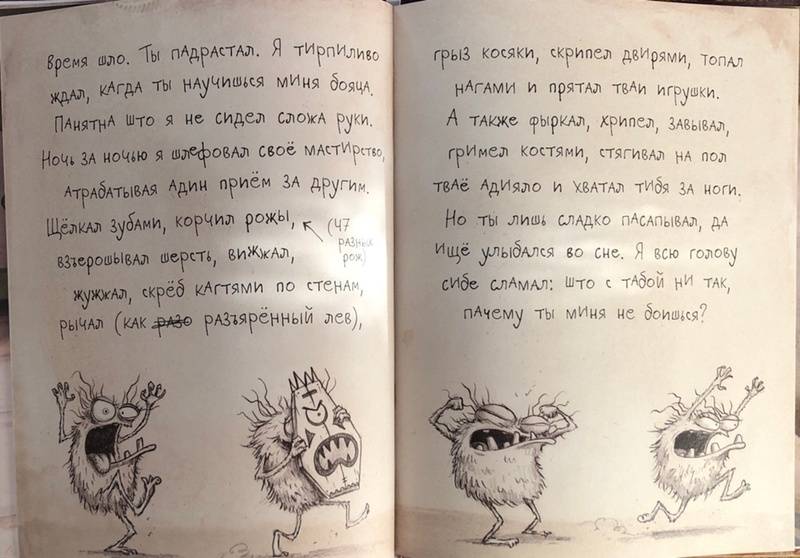 Время шло. Ты падрастал. Я тирпиливо
ждал, кагда ты научишься миня бояца.
Панятна што я не сидел сложа руки.
Ночь за ночью я шлефовал своё мастирство,
атрабатывая адин приём за другим.
Щёлкал зубами, корчил рожы,
(47
разных
рож)
взъерошывал шерсть, вижжал,
жужжал, скрёб кагтями по стенам,
рычал (как разо разъярённый лев),
грыз косяки, скрипел двирями, топал
нагами и прятал тваи игрушки.
А также фыркал, хрипел, завывал,
гримел костями, стягивал на пол
тваё адияло и хватал тибя за ноги.
Но ты лишь сладко пасапывал, да
ищё улыбался во сне. Я всю голову
сибе сламал: што с табой ни так,
пачему ты миня не боишься?